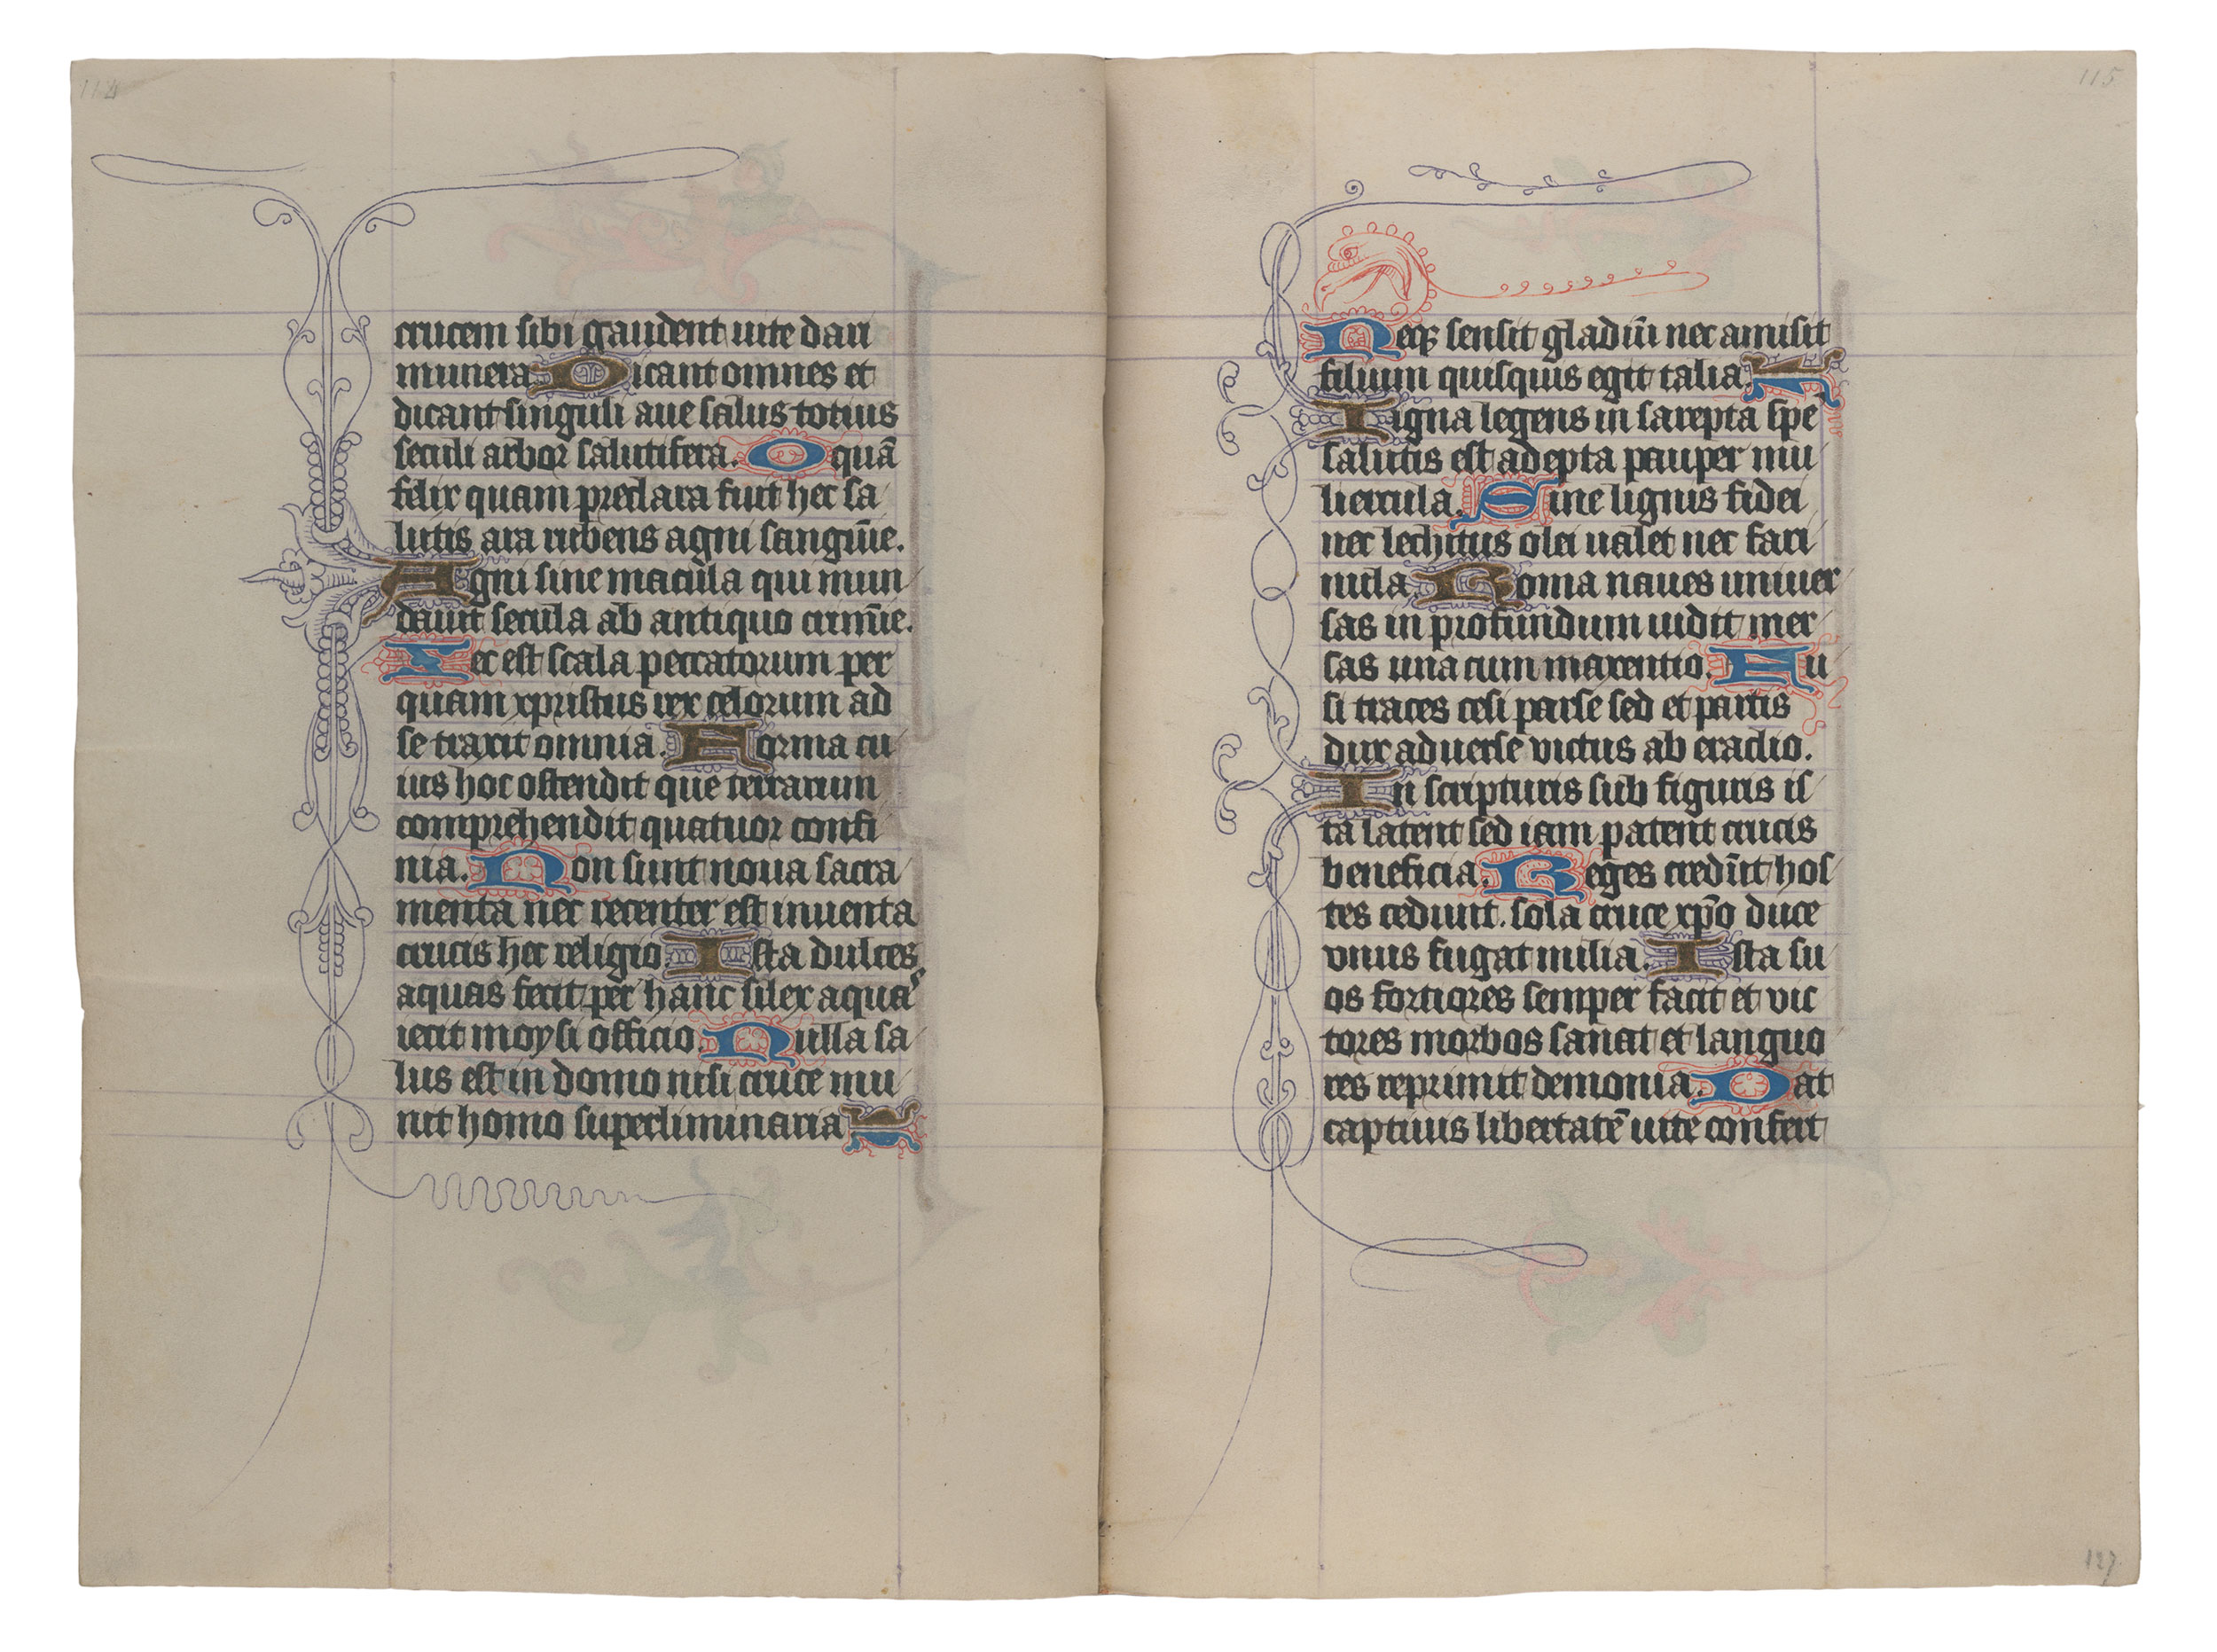 114
crucem sibi gaudent uite dari
munera Dicant omnes et
dicant singuli aue salus totius
seculi arbor salutifera. O quā
felix quam preclara fuit hec sa
lutis ara rubens agni sanguīe.
Agni sine macula qui mun
dauit secula ab antiquo crimīe.
Hec est scala peccatorum per
quam xpristus rex celorum ad
se traxit omnia. Forma cu
ius hoc ostendit que terrarum
comprehendit quatuor confi
nia. Non sunt noua sacra
menta nec recenter est inuenta
crucis hec religio. Ista dulces
aquas fecit per hanc silex aquas
iecit moysi officio. Nulla sa
lus est in domo nisi cruce mu
nit homo superliminaria
115
Neqꝫ sensit gladiū nec amisit
filium quisquis egit talia.
Ligna legens in sarepta spē
salutis est adepta pauper mu
liercula. Sine lignis fidei
nec lechitus olei ualet nec fari
nula. Roma naues uniuer
sas in profundum uidit mer
sas una cum maxentio. Fu
si traces cesi parse sed et partis
dux aduerse victus ab eraclio.
In scripturis sub figuris is
ta latent sed iam patent crucis
beneficia. Reges credūt hos
tes cedunt. sola cruce xp̄o duce
vnus fugat milia. Ista su
os fortiores semper facit et vic
tores morbos sanat et languo
res reprimit demonia. Dat
captiuis libertatē uite confert
127